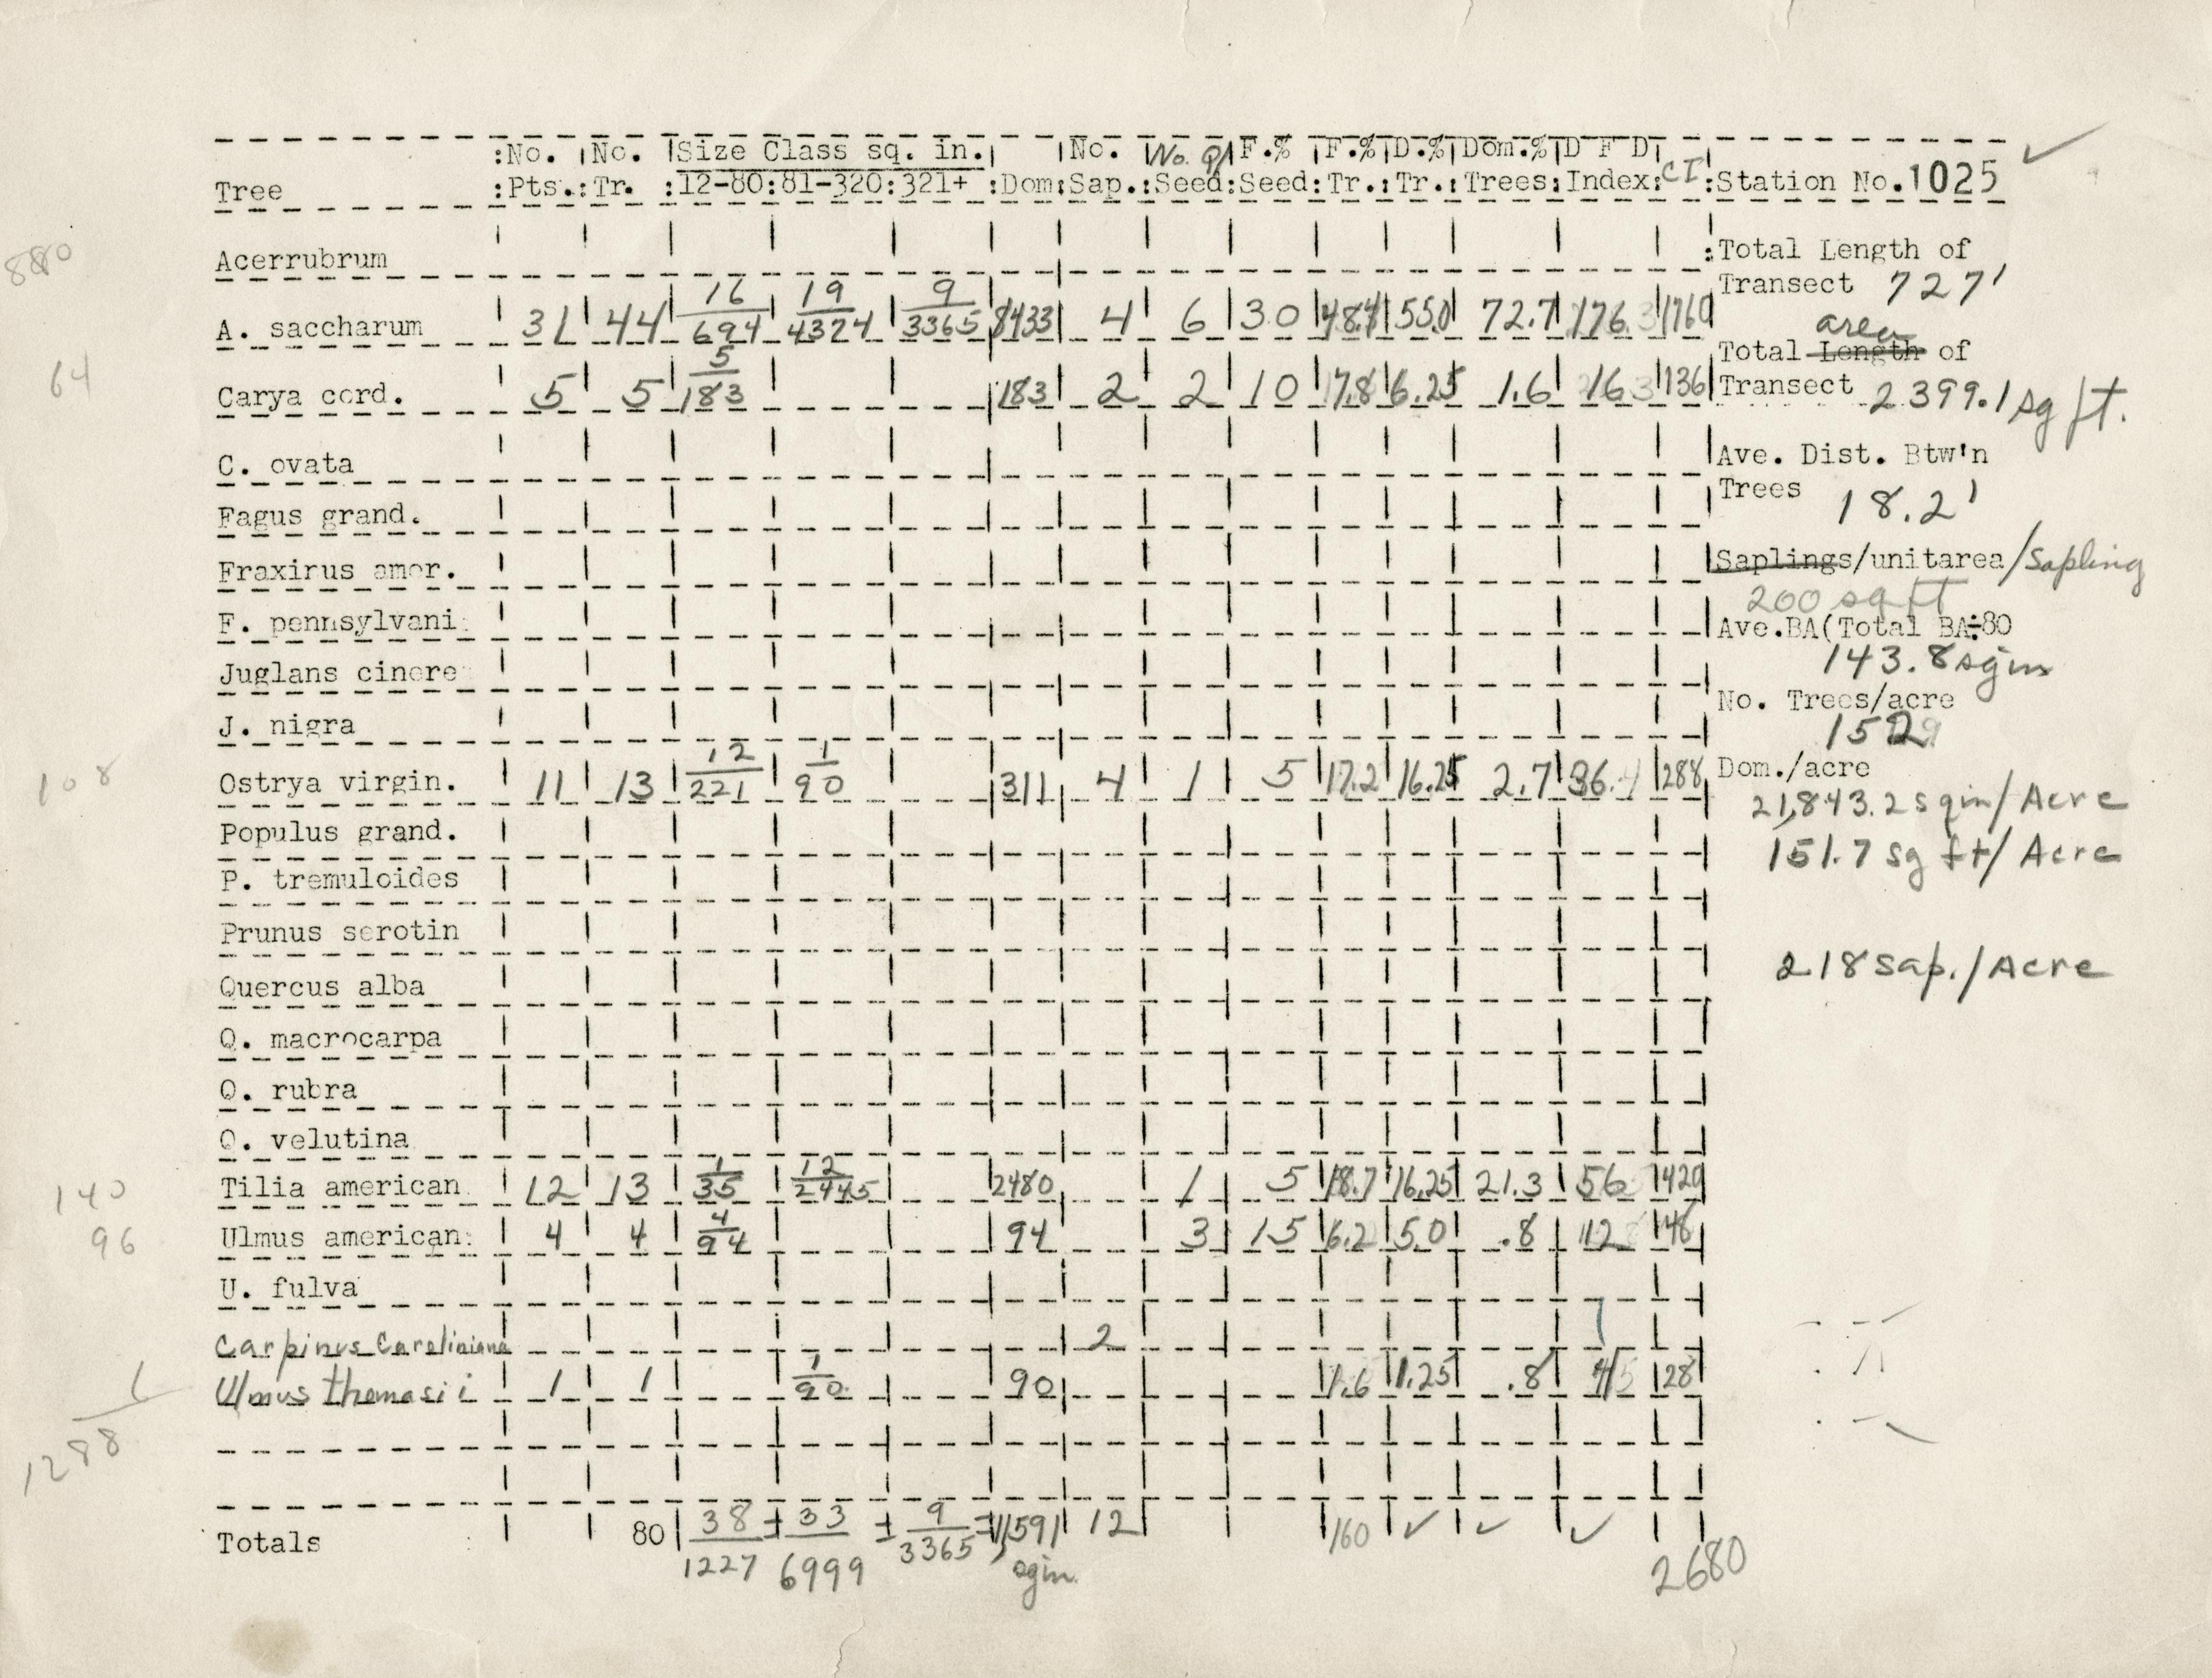 :No. No. Size Class sq. in. No. No. Q F.% F.% D.% Dom.% D F D
Tree :Pts.:Tr. :12-80:81-320:321+ :Dom:Sap.:Seed:Seed:Tr.:Tr.:Trees:Index: CI :Station No.1025
880
Acerrubrum :Total Length of
Transect 727'
16 19 9
A. saccharum 31 44 694 4324 3365 8433 4 6 30 48.4 55.0 72.7 176. 1760
area
Total Length of
64
5
Carya cord. 5 5 183 183 2 2 10 7.8 6.25 1.6 16 136 Transect 2399.1 sq ft.
C. ovata Ave. Dist. Btw'n
Trees 18.2'
Fagus grand.
Fraxinus amer. Saplings/unitarea/Sapling
200 sq ft
F. pennsylvani Ave.BA(Total BA÷80
143.8 sqin
Juglans cinere
J. nigra No. Trees/acre
152
108
12 1
Ostrya virgin. 11 13 221 90 311 4 1 5 17.2 16.25 2.7 36. 288 Dom./acre
21,843.2 sqin/Acre
Populus grand.
151.7 sq ft/Acre
P. tremuloides
Prunus serotin
218 sap./Acre
Quercus alba
Q. macrocarpa
Q. rubra
Q. velutina
140
1 12
Tilia american 12 13 35 2445 2480 1 5 18.7 16.25 21.3 56 1420
96
4
Ulmus american 4 4 94 94 3 15 6.2 5.0 .8 12 148
U. fulva
Carpinus Caroliniana 2
1
Ulmus thomasii 1 1 90 90 1.6 1.25 .8 4 28
1288
Totals 80 38 + 33 + 9 = 11,591 12 160
1227 6999 3365 sqin.
2680